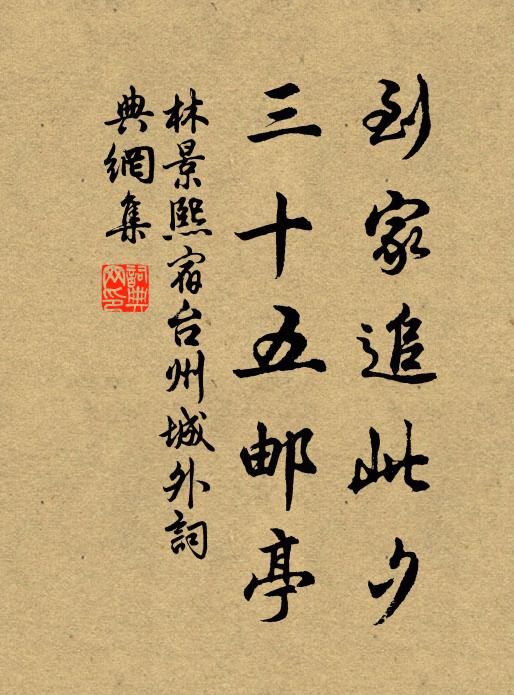 到家追此夕
三十五邮亭
林景熙宿台州城外詞
典網集
詞典網印